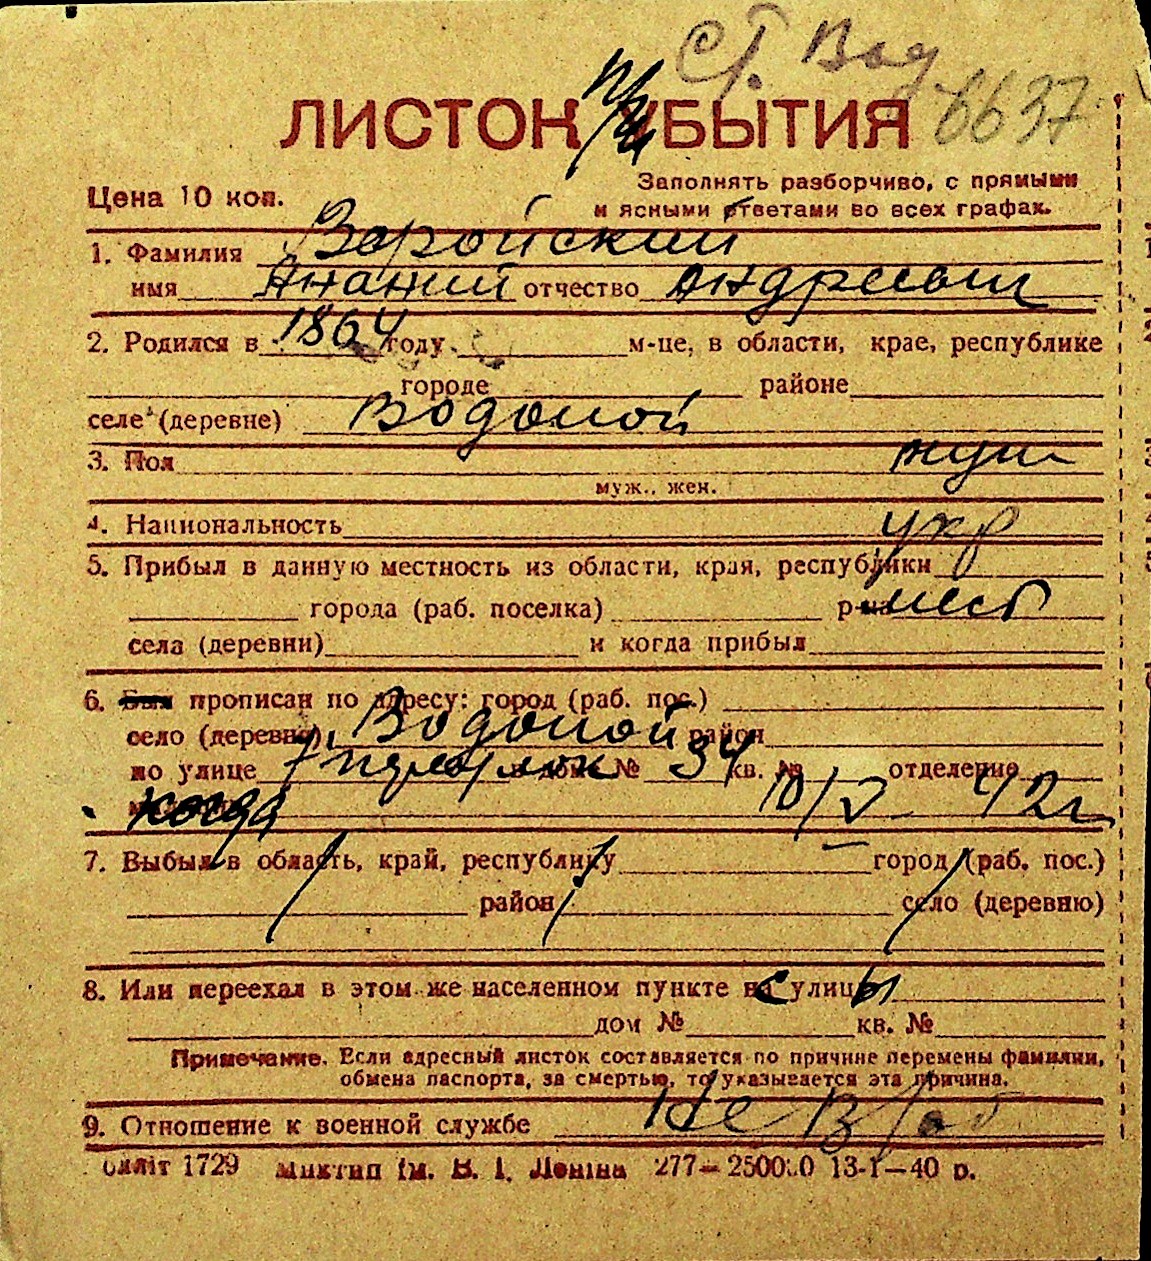 Ст. Вод
6637
ЛИСТОК УБЫТИЯ
Цена 10 коп.
Заполнять разборчиво, с прямыми
и ясными ответами во всех графах.
1. Фамилия Воройский
имя Ананий отчество Андреевич
2. Родился в 1864 году м-це, в области, крае, республике
городе районе
селе (деревне) Водопой
3. Пол муж
муж., жен.
4. Национальность укр
5. Прибыл в данную местность из области, края, республики
города (раб. поселка) р-на мест
села (деревни) и когда прибыл
6. Был прописан по адресу: город (раб. пос.)
село (деревня) Водопой район
по улице 7 дом № 34 кв. № отделение
когда 10/V - 42 г
7. Выбыл в область, край, республику город (раб. пос.)
район село (деревню)
8. Или переехал в этом же населенном пункте с улицы
дом № кв. №
Примечание. Если адресный листок составляется по причине перемены фамилии,
обмена паспорта, за смертью, то указывается эта причина.
9. Отношение к военной службе Не в/об
1729 ім. В. І. Леніна 277— 250000 13-I—40 р.